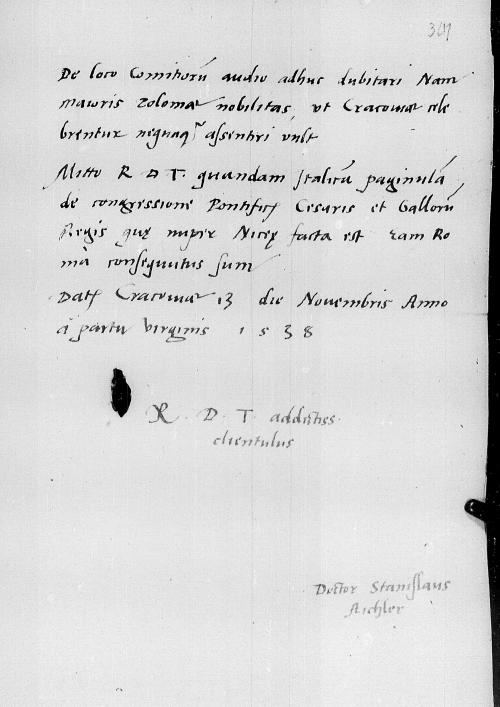 De loco Comitiorū audio adhuc dubitari Nam
maioris Poloniæ nobilitas, ut Cracoviæ cele
brentur nequaq̃ assentiri vult
Mitto R D T. quandam Italicā paginulā
de congressione Pontificis Cesaris et Gallorū
Regis quę nuper Nicę facta est eam Ro
mā consequutus sum
Datę Cracoviæ 13 die Novembris Anno
á partu virginis 1 5 3 8
R. D. T addictiss.
clientulus
Doctor Stanisslaus
Aichler